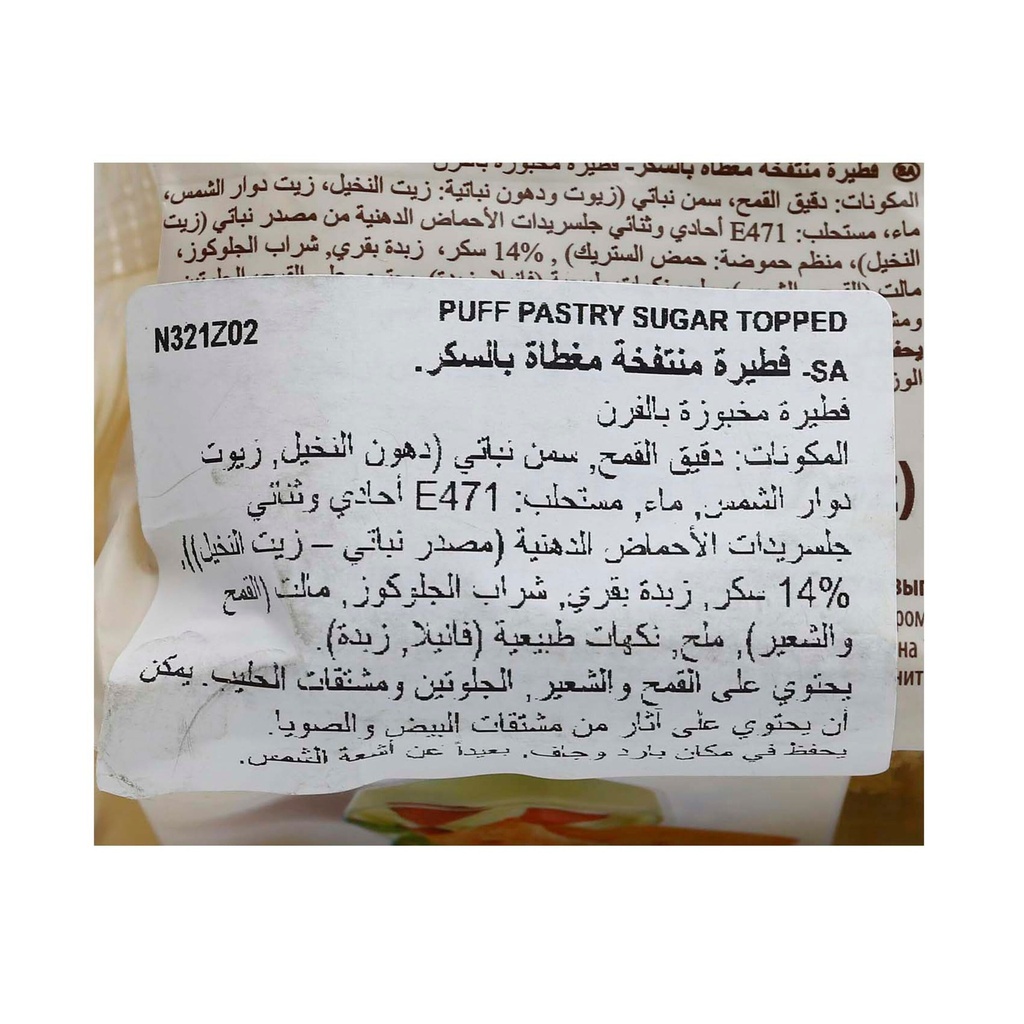 SA فطيرة منتفخة مغطاة بالسكر- فطيرة مخبوزة بالفرن
المكونات: دقيق القمح، سمن نباتي (زيوت ودهون نباتية: زيت النخيل، زيت دوار الشمس،
ماء، مستحلب: E471 أحادي وثنائي جلسريدات الأحماض الدهنية من مصدر نباتي (زيت
النخيل)، منظم حموضة: حمض الستريك) , %14 سكر، زبدة بقري, شراب الجلوكوز,
مالت
الوز
PUFF PASTRY SUGAR TOPPED
N321Z02
SA- فطيرة منتفخة مغطاة بالسكر.
فطيرة مخبوزة بالفرن
المكونات: دقيق القمح, سمن نباتي (دهون النخيل, زيوت
دوار الشمس, ماء, مستحلب: E471 أحادي وثنائي
جلسريدات الأحماض الدهنية (مصدر نباتي – زيت النخيل)),
%14 سكر, زبدة بقري, شراب الجلوكوز, مالت (القمح
والشعير), ملح, نكهات طبيعية (فانيلا, زبدة).
يحتوي على القمح والشعير, الجلوتين ومشتقات الحليب. يمكن
أن يحتوي على آثار من مشتقات البيض والصويا.
يحفظ في مكان بارد وجاف. بعيداً عن أشعة الشمس.
на